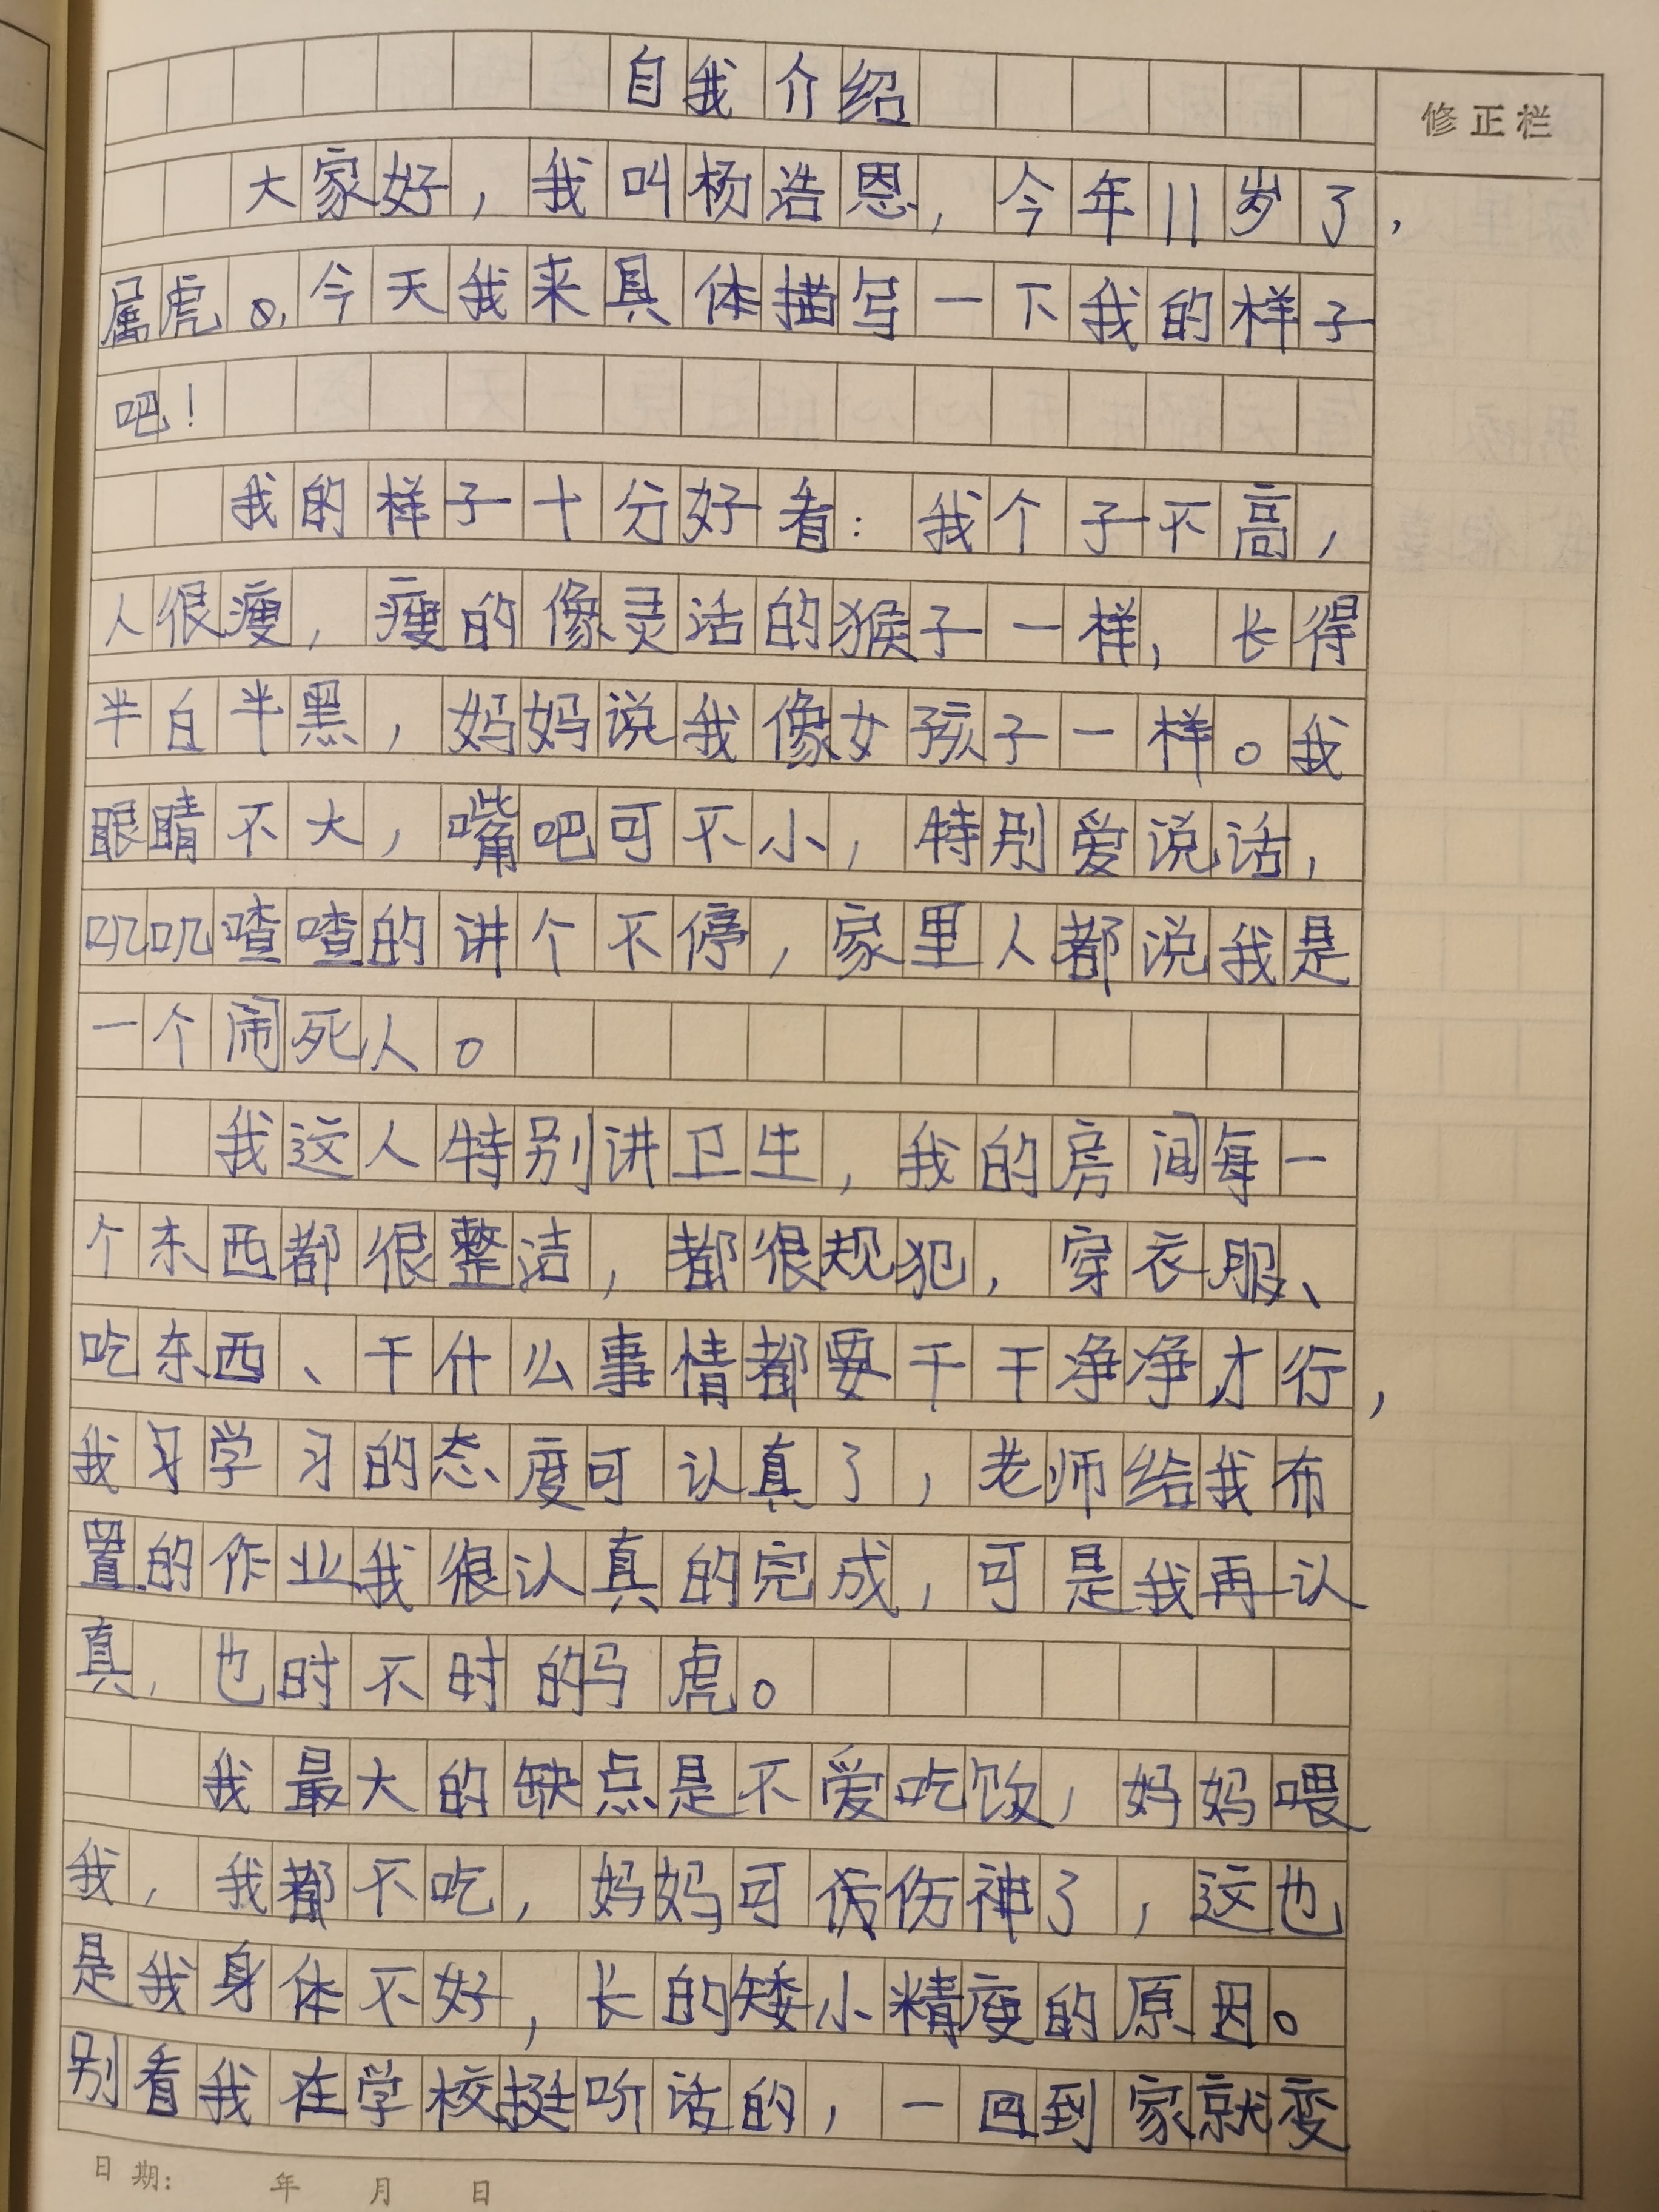 自我介绍
修正栏
大家好，我叫杨浩恩，今年11岁了，
属虎。今天我来具体描写一下我的样子
吧！
我的样子十分好看：我个子不高，
人很瘦，瘦的像灵活的猴子一样，长得
半白半黑，妈妈说我像女孩子一样。我
眼睛不大，嘴吧可不小，特别爱说话，
叽叽喳喳的讲个不停，家里人都说我是
一个闹死人。
我这人特别讲卫生，我的房间每一
个东西都很整洁，都很规犯，穿衣服、
吃东西、干什么事情都要干干净净才行，
我习学习的态度可认真了，老师给我布
置的作业我很认真的完成，可是我再认
真，也时不时的马虎。
我最大的缺点是不爱吃饭，妈妈喂
我，我都不吃，妈妈可伤神了，这也
是我身体不好，长的矮小精瘦的原因。
别看我在学校挺听话的，一回到家就变
日期： 年 月 日